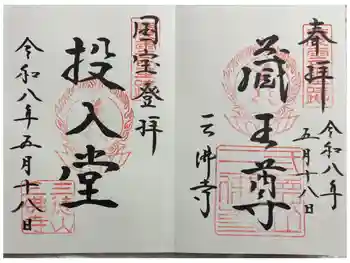 奉拝
蔵王尊
令和八年
五月十八日
三佛寺
国宝登拝
投入堂
令和八年五月十八日